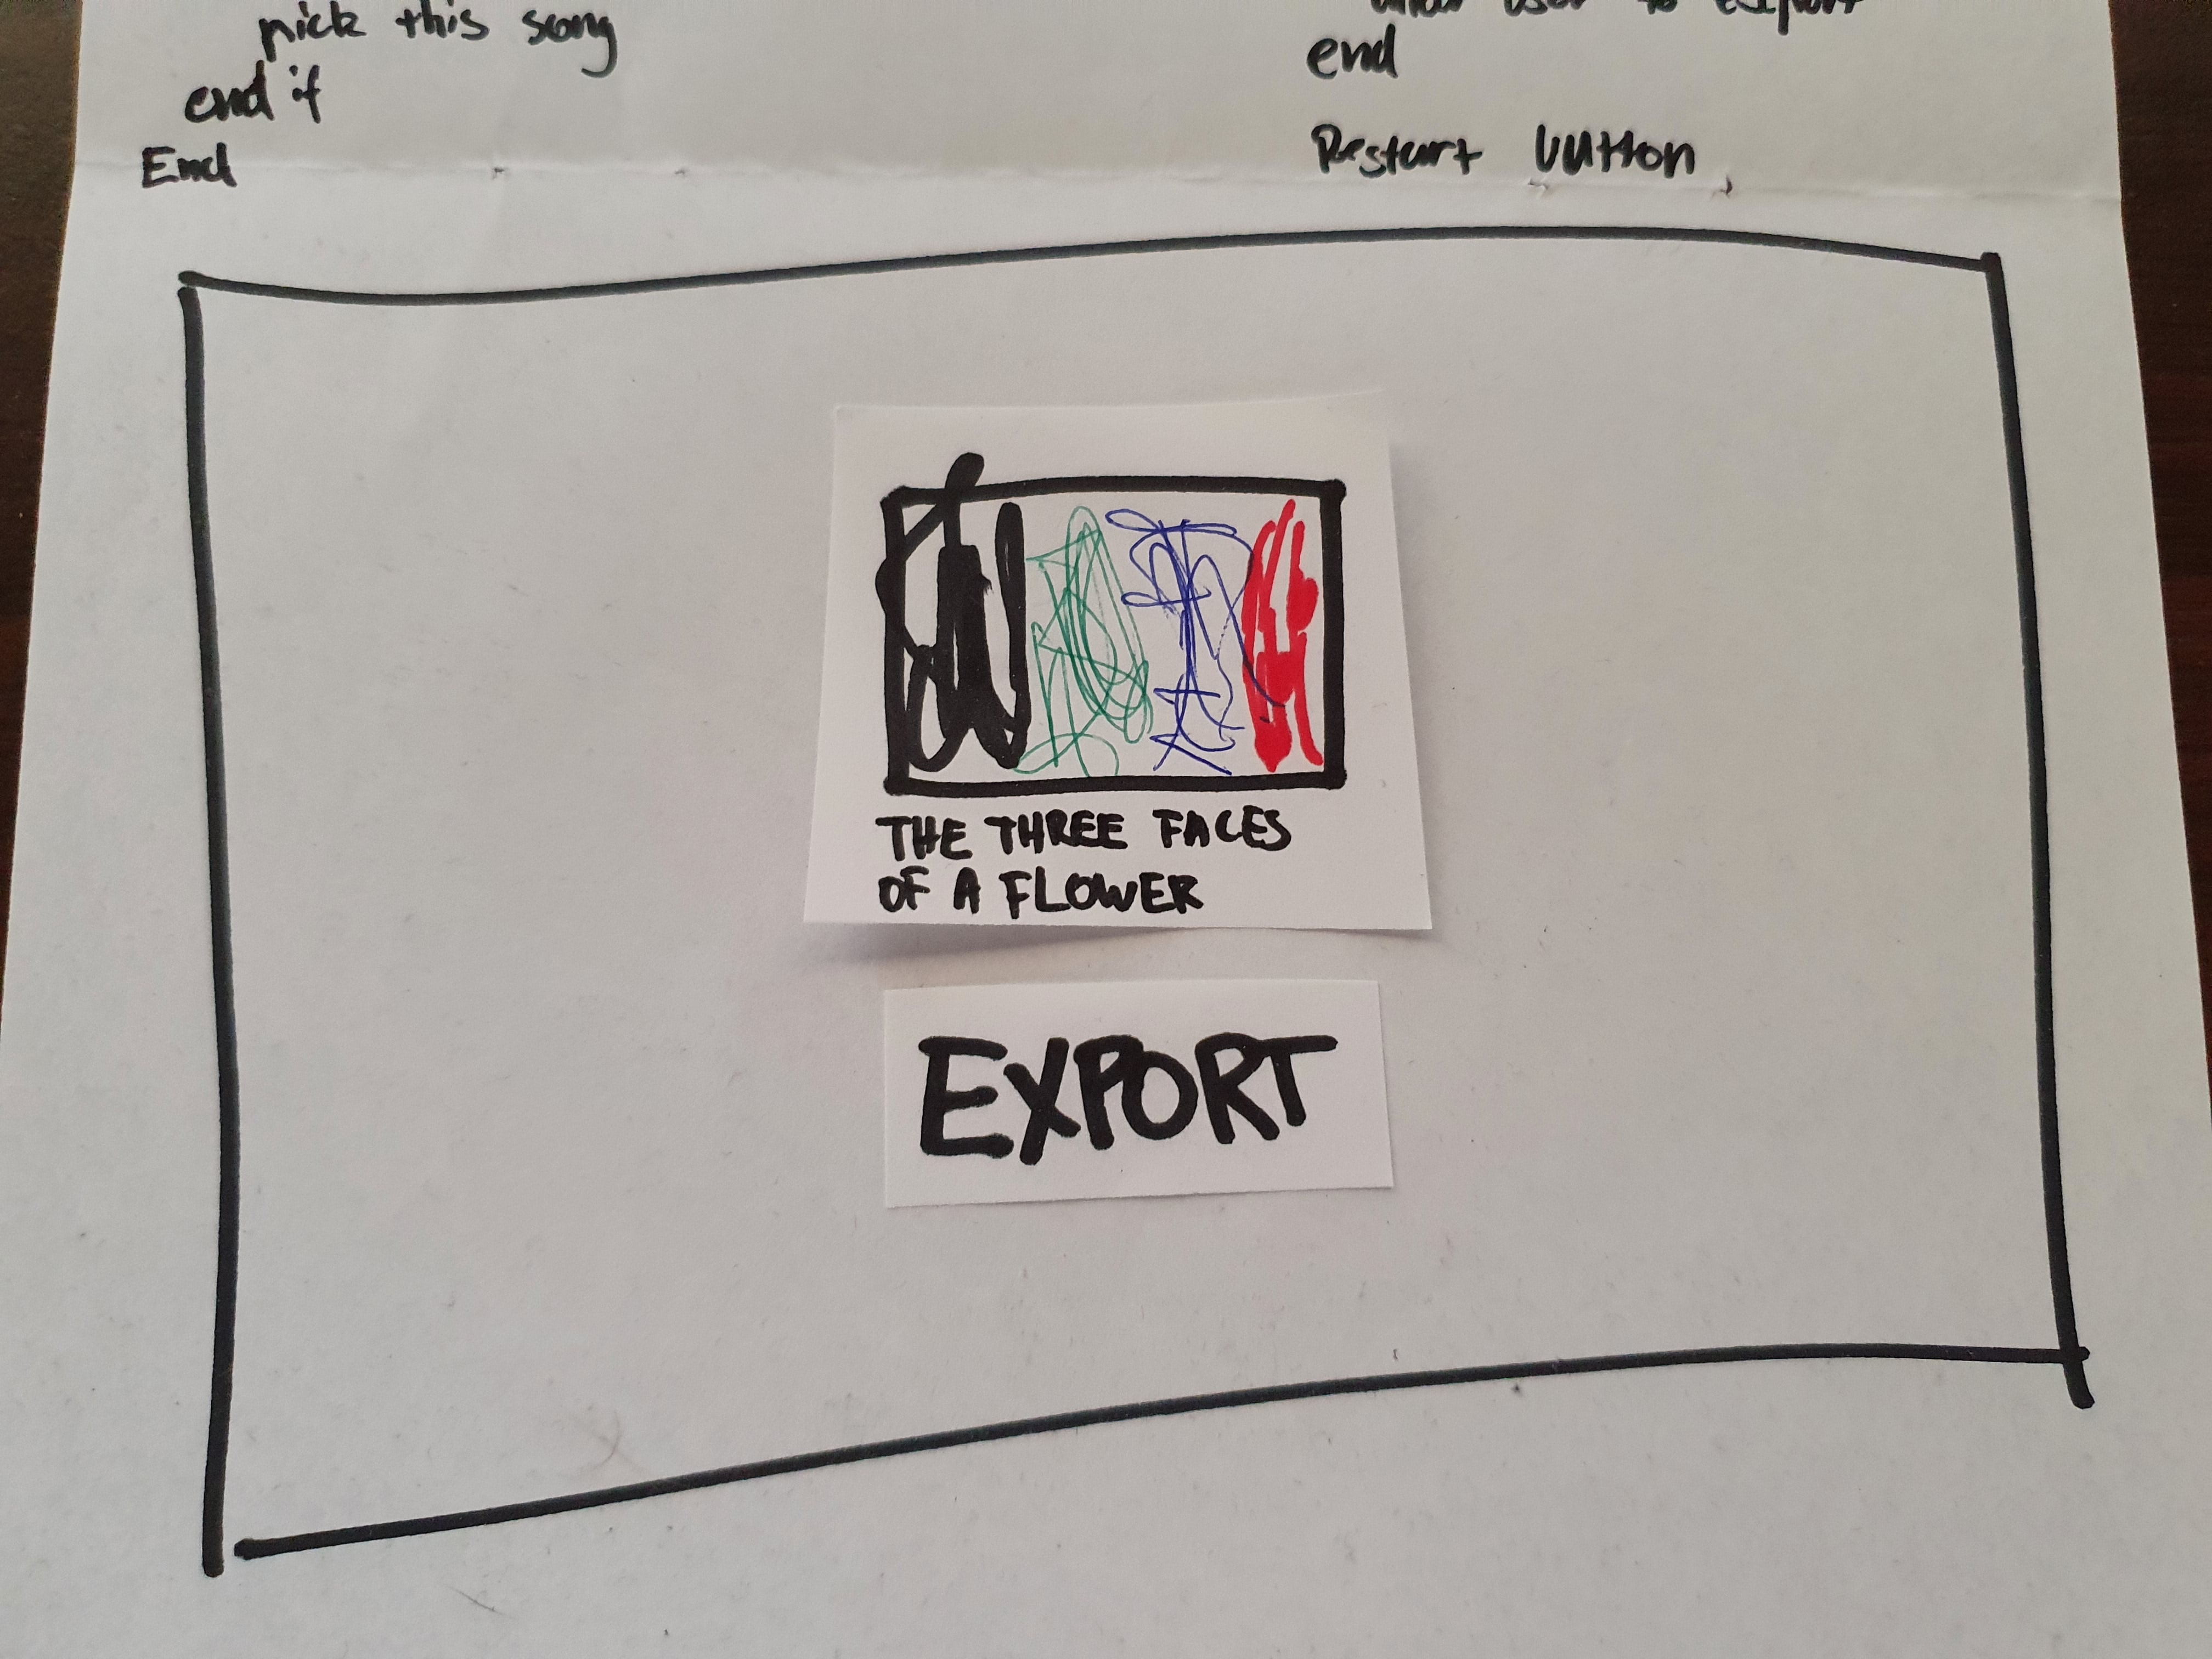 pick this song
end if
End
user to export
end
Restart button
THE THREE FACES
OF A FLOWER
EXPORT